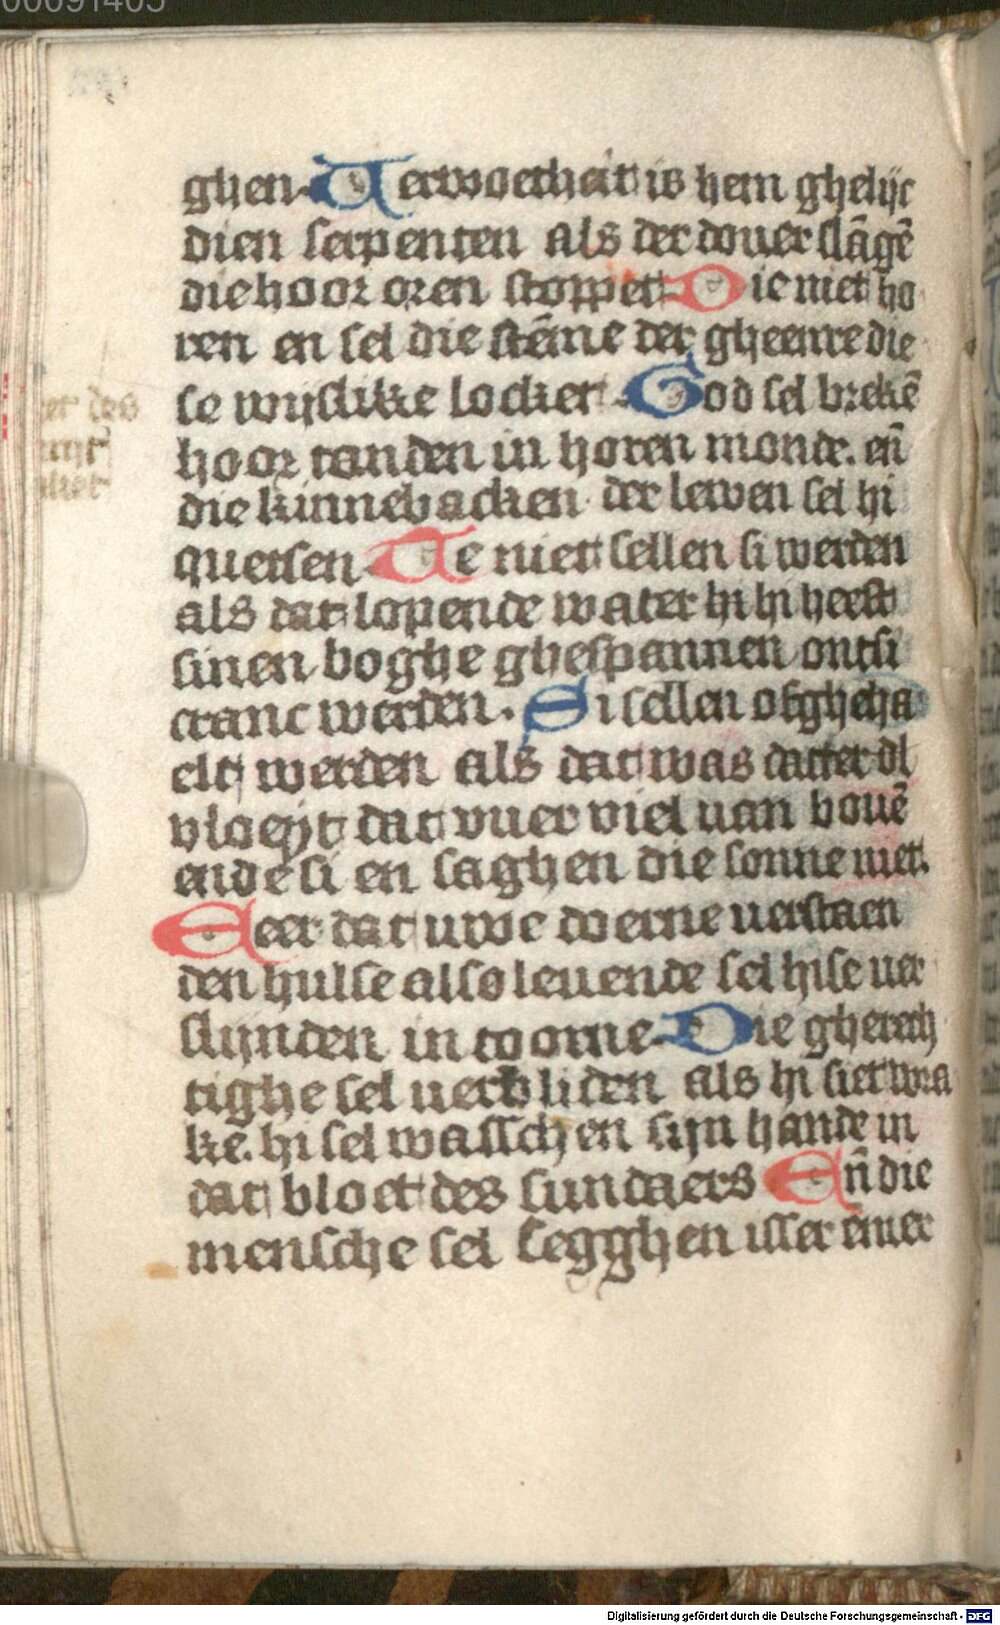 00091405
ghen. Verwoetheit is hem ghelijc
dien serpenten als der douer slāgē
die hoor oren stoppet Die niet ho
ren en sel die stēme der gheenre die
se wijslike locket. God sel brekē
hoor tanden in horen monde. en̄
die kinnebacken der lewen sel hi
quetsen Te niet sellen si werden
als dat lopende water hi hi heeft
sinen boghe ghespannen ontsi
cranc werden. Si sellen ofgheha
elt werden als dat was datter of
vloeyt dat vuer viel uan bouē
ende si en saghen die sonne niet.
Eeer dat uwe doerne uerstaen
den hulse also leuende sel hise uer
slijnden in toorne. Die gherech
tighe sel uerbliden als hi siet wra
ke. hi sel wasschen sijn hande in
dat bloet des sundaers En̄ die
mensche sel segghen isser ēmer
Digitalisierung gefördert durch die Deutsche Forschungsgemeinschaft - DFG